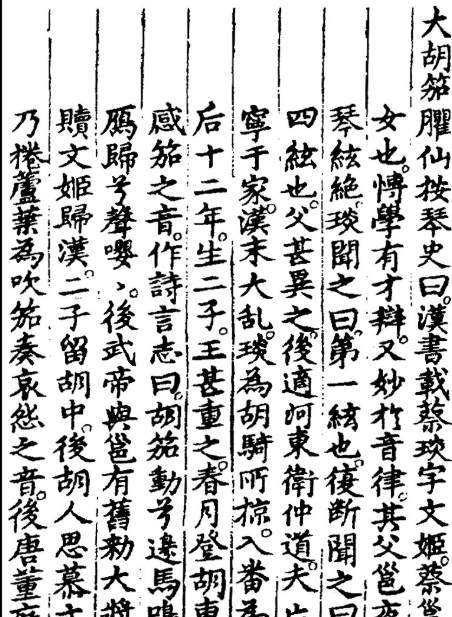 大胡笳臞仙按琴史曰漢書載蔡琰字文姬蔡邕
女也博學有才辯又妙於音律其父邕夜
琴絃絶琰聞之曰第一絃也復断聞之曰
四絃也父甚異之後適河東衛仲道夫亡
寧于家漢末大乱琰為胡騎所掠入番為
后十二年生二子王甚重之春月登胡車
感笳之音作詩言志曰胡笳動兮邊馬鳴
鴈歸兮聲嚶〻後武帝與邕有舊勑大將
贖文姬歸漢二子留胡中後胡人思慕文
乃捲蘆葉為吹笳奏哀怨之音後唐董庭